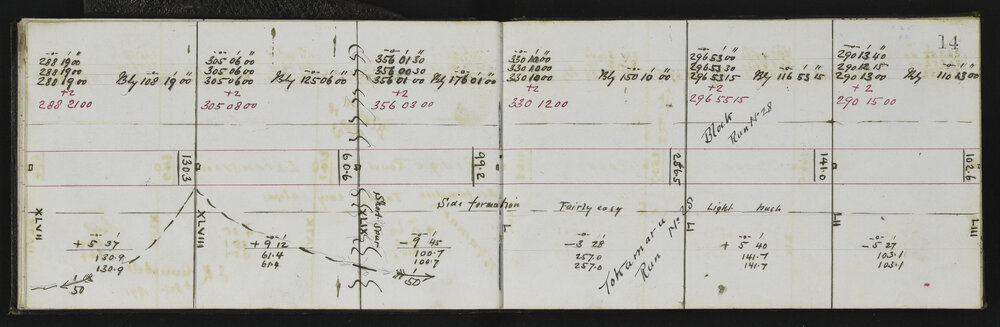 14
° ' "
288 19 00
288 19 00
288 19 00 Bly 108 19 00
+2
288 21 00
° ' "
305 06 00
305 06 00
305 06 00 Bly 125 06 00
+2
305 08 00
° ' "
356 01 30
356 00 30
356 01 00 Bly 176 01 00
+2
356 03 00
° ' "
330 10 00
330 10 00
330 10 00 Bly 150 10 00
+2
330 12 00
° ' "
296 53 00
296 53 30
296 53 15 Bly 116 53 15
+2
296 55 15
° ' "
290 13 40
290 12 15
290 13 00 Bly 110 13 00
+2
290 15 00
Block
Run No 28
130.3
60.6
99.2
286.5
141.0
102.6
XLVII
XLVIII
XLIX
Short spur
L
LI
LII
LIII
Side formation
Fairly easy
Light bush
Tokamaru
Run
+ 5 37
130.9
130.9
1/50
+ 9 12
61.4
61.4
- 9 45
100.7
100.7
1/50
- 3 28
257.0
257.0
+ 5 40
141.7
141.7
- 5 27
103.1
103.1